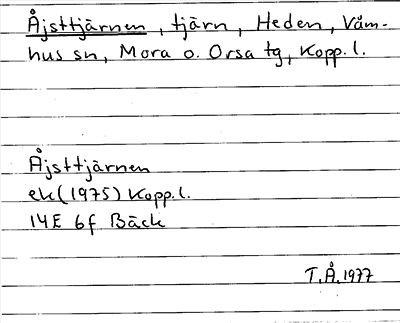 Åjsttjärnen, tjärn, Heden, Våm-
hus sn, Mora o. Orsa tg, Kopp. l.
Åjsttjärnen
ek (1975) Kopp. l.
14E 6f Bäck
T.Å. 1977